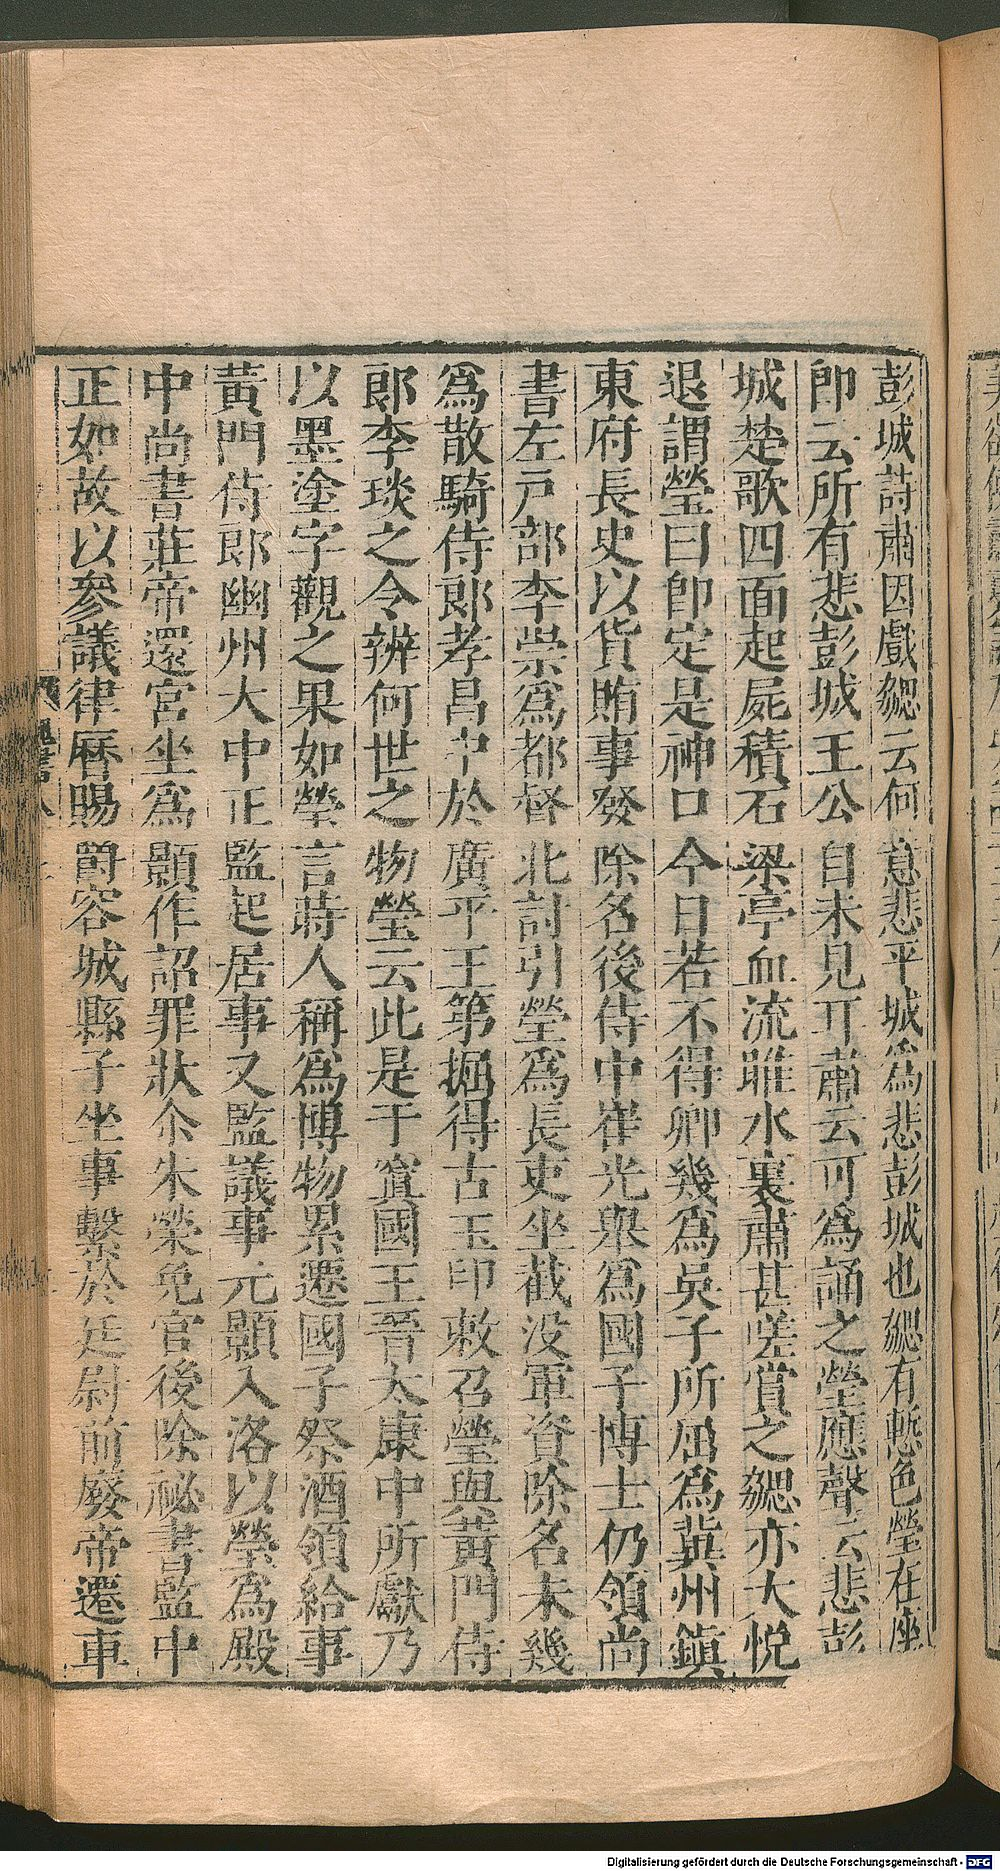 彭城詩肅因戲勰云何意悲平城爲悲彭城也勰有慙色瑩在座
卽云所有悲彭城王公自未見耳肅云可爲誦之瑩應聲云悲彭
城楚歌四面起屍積石梁亭血流睢水裏肅甚嗟賞之勰亦大悅
退謂瑩曰卽定是神口今日若不得卿幾爲吳子所屈爲冀州鎮
東府長史以貨賄事發除名後侍中崔光舉爲國子博士仍領尚
書左戸部李崇爲都督北討引瑩爲長吏坐截没軍資除名未幾
爲散騎侍郞孝昌中於廣平王第掘得古玉印敕召瑩與黃門侍
郞李琰之令辨何世之物瑩云此是于窴國王晉太康中所獻乃
以墨塗字觀之果如瑩言時人稱爲博物累遷國子祭酒領給事
黃門侍郞幽州大中正監起居事又監議事元顥入洛以瑩爲殿
中尚書莊帝還宮坐爲顥作詔罪狀尒朱榮免官後除祕書監中
正如故以參議律曆賜爵容城縣子坐事繫於廷尉前廢帝遷車
Digitalisierung gefördert durch die Deutsche Forschungsgemeinschaft - DFG